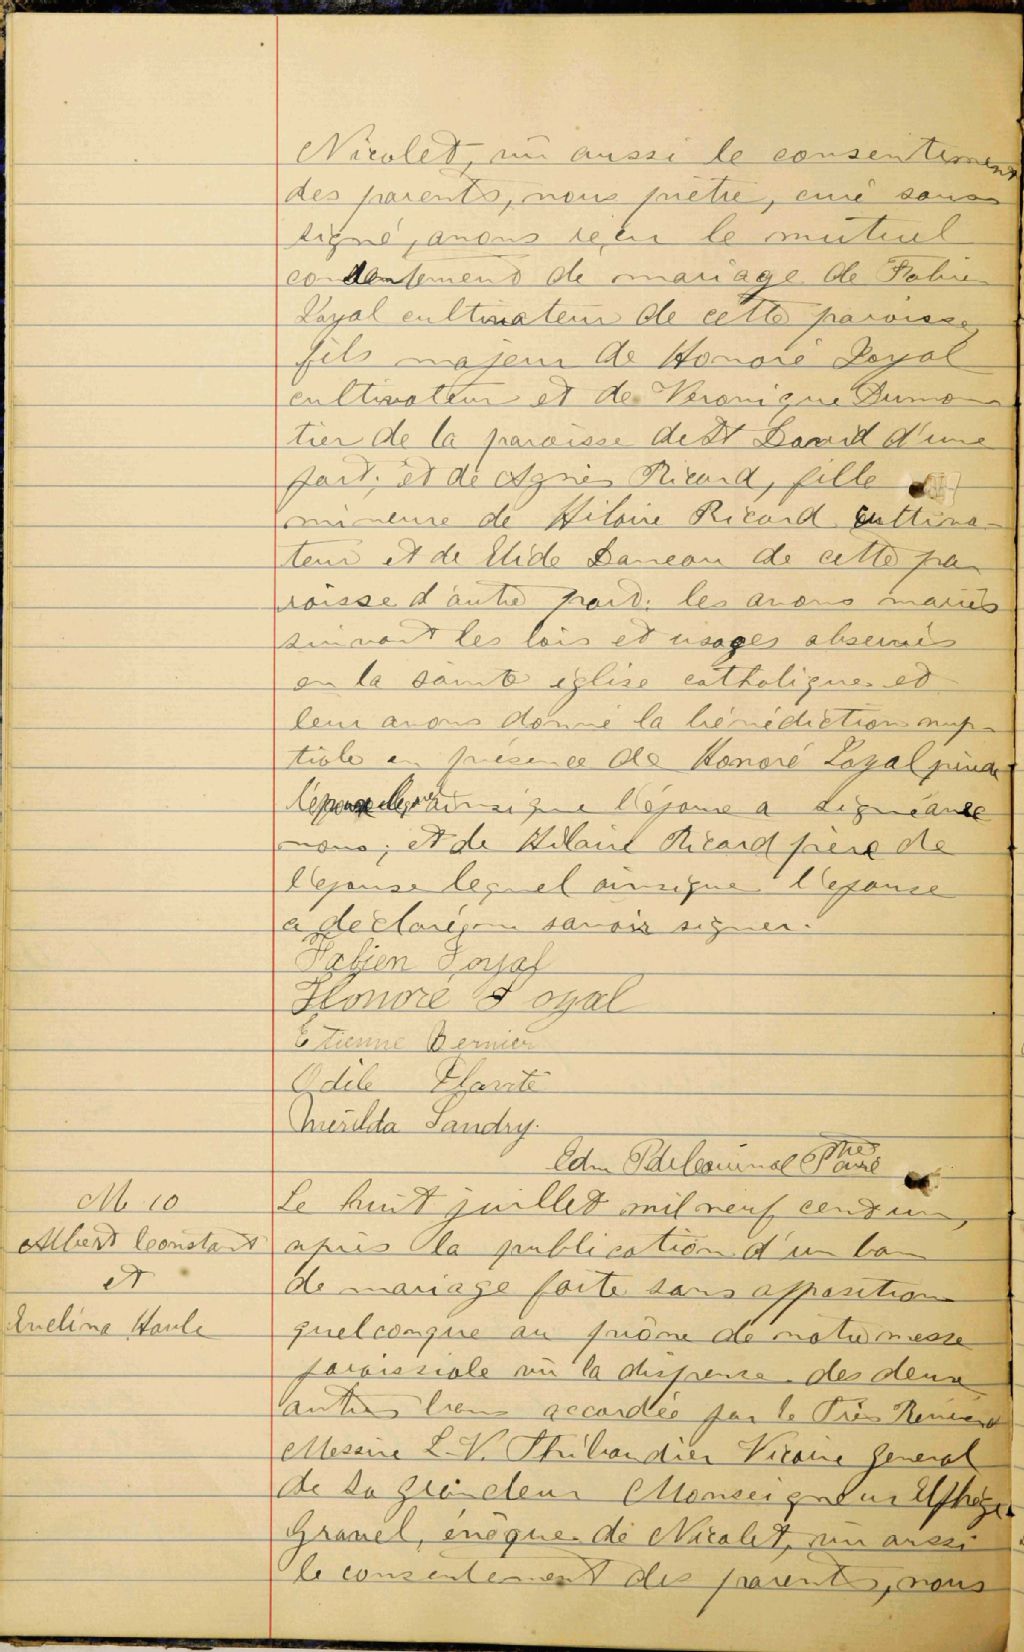 Nicolet, vû aussi le consentement
des parents, nous prêtre, curé sous
signé, avons reçu le mutuel
consentement de mariage de Fabien
Joyal cultivateur de cette paroisse,
fils majeur de Honoré Joyal
cultivateur et de Veronique Dumou
tier de la paroisse de St David d'une
part; et de Agnès Ricard, fille
mineure de Hilaire Ricard cultiva-
teur et de Elide Daneau de cette pa
roisse d'autre part; les avons mariés
suivant les lois et usages observés
en la sainte église catholique et
leur avons donné la bénédiction nup-
tiale en présence de Honoré Joyal père de
l'époux lequel ainsi que l'époux a signé avec
nous; et de Hilaire Ricard père de
l'épouse lequel ainsi que l'épouse
a déclaré ne savoir signer.
Fabien Joyal
Honoré Joyal
Etienne Bernier
Odile Plante
Mérilda Landry.
Edm Ptre Curé
M 10
Albert Constant
et
Evelina Houle
Le huit juillet mil neuf cent un,
après la publication d'un ban
de mariage faite sans opposition
quelconque au prône de notre messe
paroissiale vû la dispense des deux
autres bans accordée par le Très Révérend
Messire L. V. Thibaudier Vicaire General
de Sa Grandeur Monseigneur Elphège
Gravel, évêque de Nicolet, vû aussi
le consentement des parents, nous